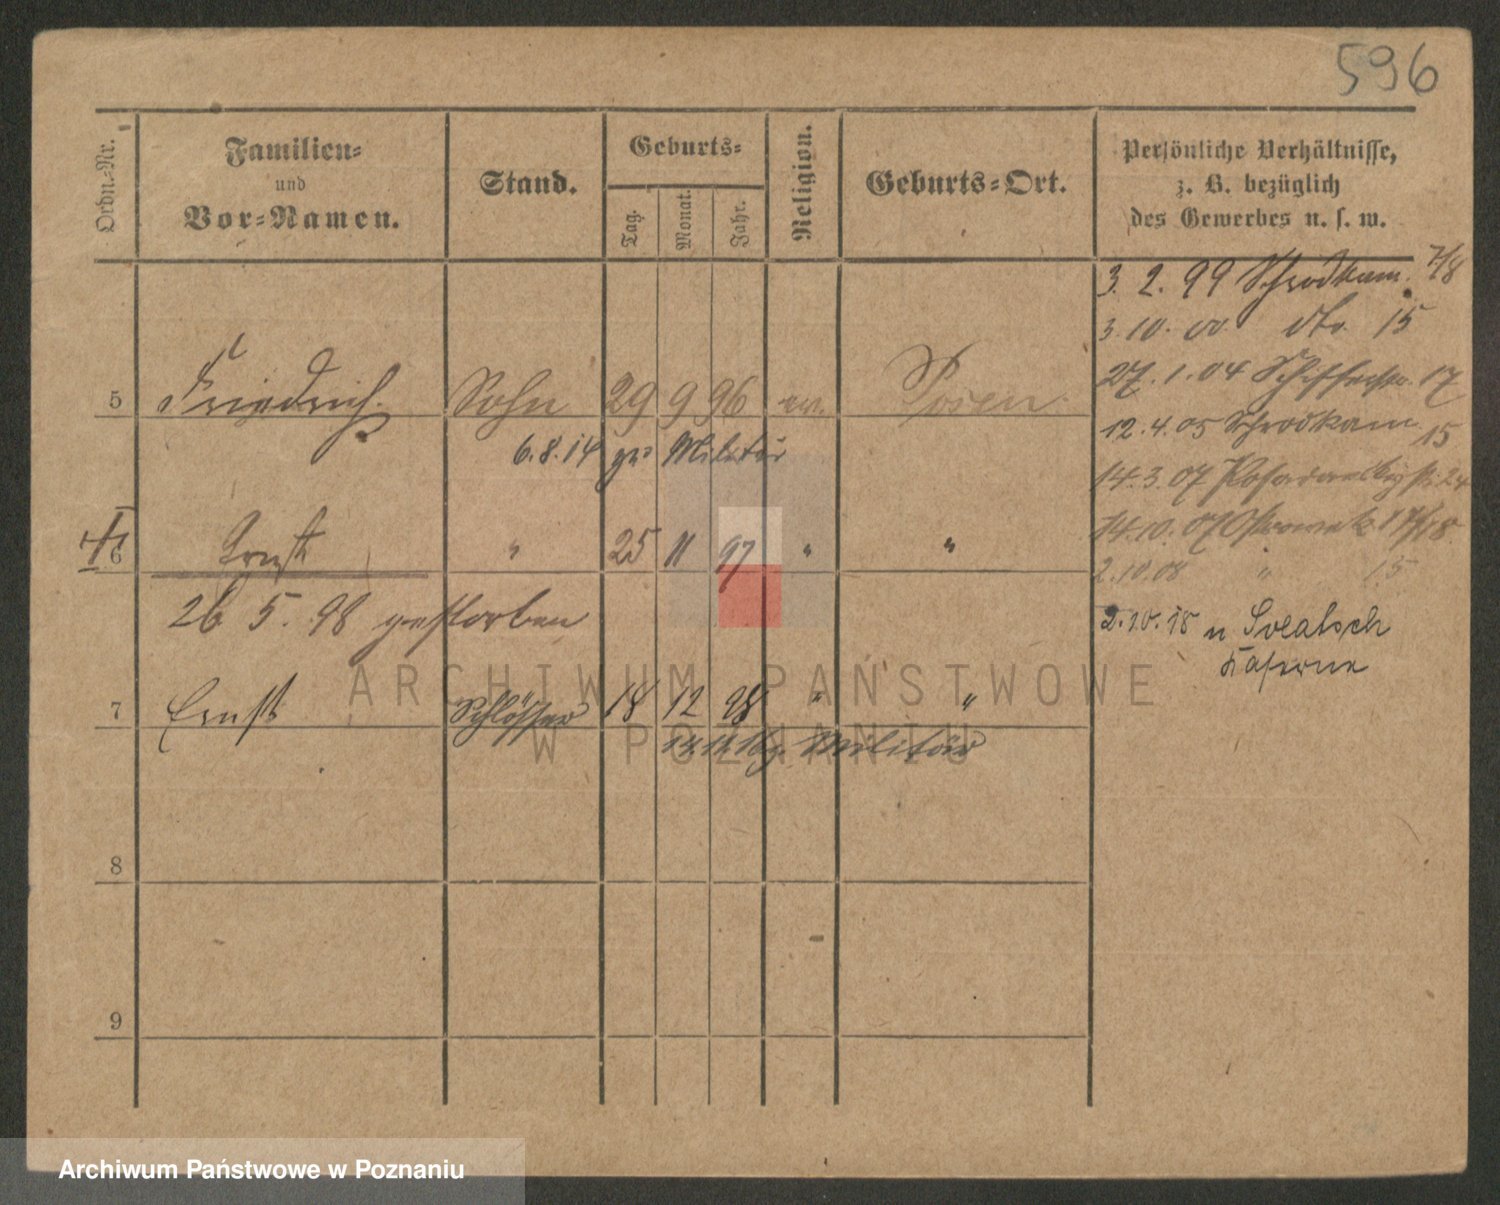 596
Ordn.-Nr.
Familien-
und
Vor-Namen.
Stand.
Geburts-
Tag.
Monat.
Jahr.
Religion.
Geburts-Ort.
Persönliche Verhältnisse,
z. B. bezüglich
des Gewerbes u. s. w.
3. 2. 99 Schrodkam. 7/8
3. 10. 00 dto 15
27. 1. 04 Schifferstr. 17
5 Friedrich Sohn 29 9 96 ev. Posen
12. 4. 05 Schrodkam 15
6.8.14 zu Militär
14. 3. 07
14. 10. 07 Ostrowek 17/18
6 Ernst " 25 11 97 " "
2.10.08 " 15
26. 5. 98 gestorben
2.10.18 n
Kaserne
7 Ernst Schlosser 18 12 98 " "
Militär
8
9
ARCHIWUM PAŃSTWOWE
W POZNANIU
Archiwum Państwowe w Poznaniu